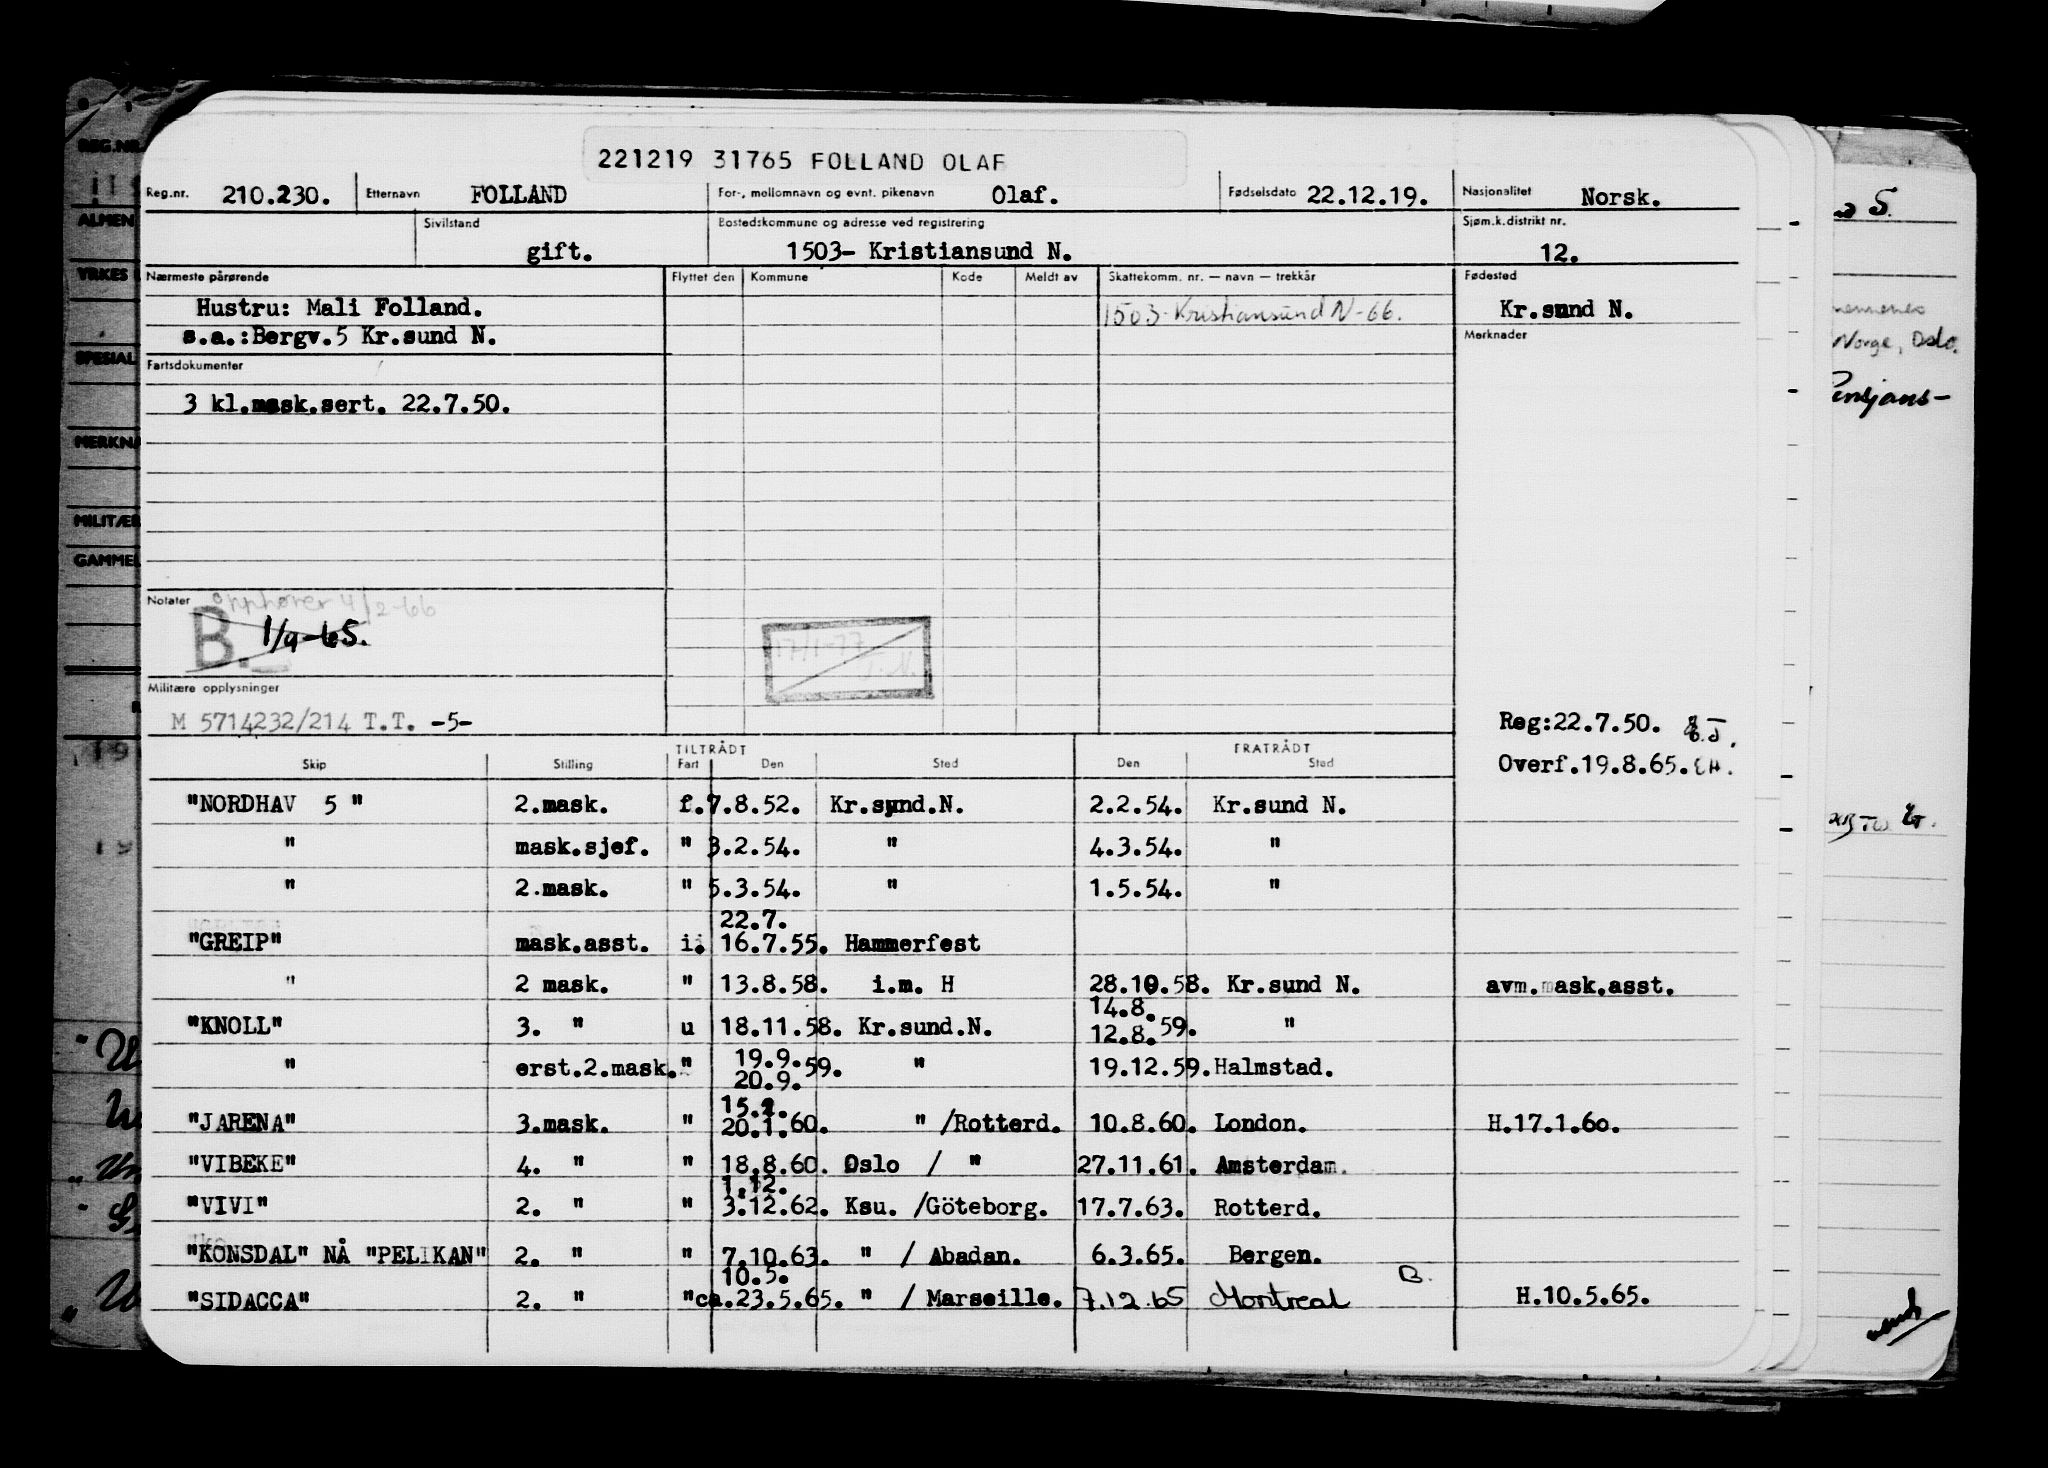 221219 31765 FOLLAND OLAF
Reg.nr. 210.230. Etternavn FOLLAND For-, mellomnavn og evnt. pikenavn Olaf. Fødselsdato 22.12.19. Nasjonalitet Norsk.
Sivilstand gift. Bostedskommune og adresse ved registrering 1503- Kristiansund N. Sjøm.k.distrikt nr. 12.
Nærmeste pårørende Flyttet den Kommune Kode Meldt av Skattekomm. nr. — navn — trekkår Fødested
Hustru: Mali Folland. 1503-Kristiansund N-66. Kr.sund N.
s.a.:Bergv.5 Kr.sund N. Merknader
Fartsdokumenter
3 kl.mask.sert. 22.7.50.
Notater opphører 4/2-66
B. 1/9-65.
17/1-77
Militære opplysninger
M 5714232/214 T.T. -5-
Reg:22.7.50.
Overf.19.8.65.
TILTRÅDT FRATRÅDT
Skip Stilling Fart Den Sted Den Sted
"NORDHAV 5 " 2.mask. f. 7.8.52. Kr.sund.N. 2.2.54. Kr.sund N.
" mask.sjef. " 3.2.54. " 4.3.54. "
" 2.mask. " 5.3.54. " 1.5.54. "
22.7.
"GREIP" mask.asst. i. 16.7.55. Hammerfest
" 2 mask. " 13.8.58. i.m. H 28.10.58. Kr.sund N. avm.mask.asst.
14.8.
"KNOLL" 3. " u 18.11.58. Kr.sund.N. 12.8.59. "
19.9.
" erst.2.mask. " 20.9.59. " 19.12.59. Halmstad.
15.1.
"JARENA" 3.mask. " 20.1.60. " /Rotterd. 10.8.60. London. H.17.1.60.
"VIBEKE" 4. " " 18.8.60. Oslo / " 27.11.61. Amsterdam.
1.12.
"VIVI" 2. " " 3.12.62. Ksu. /Göteborg. 17.7.63. Rotterd.
"KONSDAL" NÅ "PELIKAN" 2. " " 7.10.63. " / Abadan. 6.3.65. Bergen.
10.5. B.
"SIDACCA" 2. " "ca.23.5.65. " / Marseille. 7.12.65 Montreal H.10.5.65.
REG.NR.
ALMEN
YRKES
SPESIAL
MERKNA
MILITÆR
GAMMEL
S.
Norge, Oslo.
Pensjons-